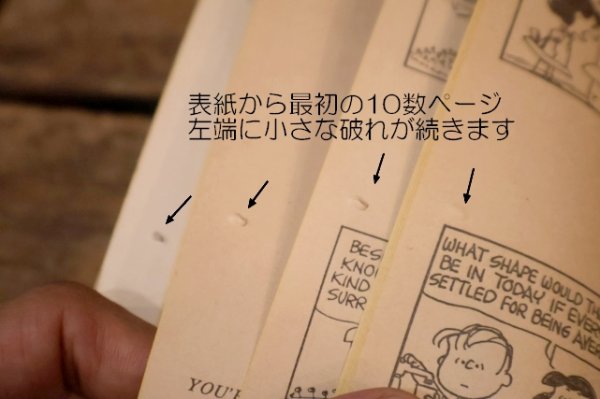 表紙から最初の10数ページ
左端に小さな破れが続きます
BES
KNO
KIND
SURR
WHAT SHAPE WOULD
BE IN TODAY IF EVER
SETTLED FOR BEING AVER
YOU'